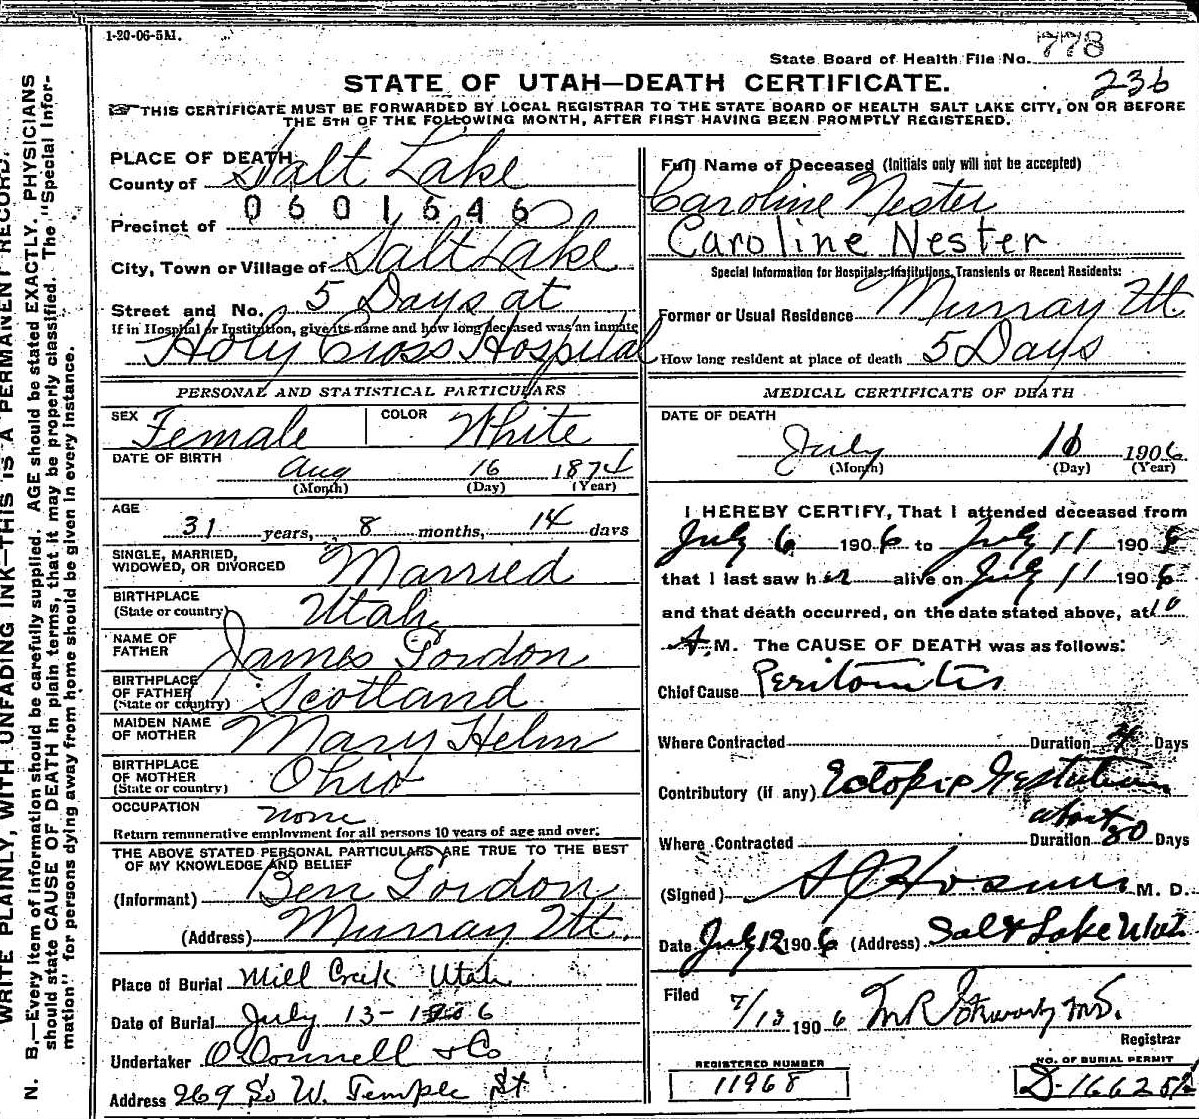 1-20-06-5M.
State Board of Health File No. 778
STATE OF UTAH—DEATH CERTIFICATE.
236
THIS CERTIFICATE MUST BE FORWARDED BY LOCAL REGISTRAR TO THE STATE BOARD OF HEALTH SALT LAKE CITY, ON OR BEFORE
THE 5TH OF THE FOLLOWING MONTH, AFTER FIRST HAVING BEEN PROMPTLY REGISTERED.
PLACE OF DEATH
County of Salt Lake
0601646
Precinct of
City, Town or Village of Salt Lake
Street and No. 5 Days at
If in Hospital or Institution, give its name and how long deceased was an inmate
Holy Cross Hospital
Full Name of Deceased (Initials only will not be accepted)
Caroline Nester
Caroline Nester
Special Information for Hospitals, Institutions, Transients or Recent Residents:
Former or Usual Residence Murray Ut
How long resident at place of death 5 Days
PERSONAL AND STATISTICAL PARTICULARS
SEX Female COLOR White
DATE OF BIRTH
Aug 16 1874
(Month) (Day) (Year)
AGE
31 years, 8 months, 14 days
SINGLE, MARRIED,
WIDOWED, OR DIVORCED Married
BIRTHPLACE
(State or country) Utah
NAME OF
FATHER James Gordon
BIRTHPLACE
OF FATHER
(State or country) Scotland
MAIDEN NAME
OF MOTHER Mary Helm
BIRTHPLACE
OF MOTHER
(State or country) Ohio
OCCUPATION none
Return remunerative employment for all persons 10 years of age and over:
THE ABOVE STATED PERSONAL PARTICULARS ARE TRUE TO THE BEST
OF MY KNOWLEDGE AND BELIEF
(Informant) Ben Gordon
(Address) Murray Ut.
Place of Burial Mill Creek Utah
Date of Burial July 13-1906
Undertaker O'Connell & Co
Address 269 So W. Temple St
MEDICAL CERTIFICATE OF DEATH
DATE OF DEATH
July 11 1906
(Month) (Day) (Year)
I HEREBY CERTIFY, That I attended deceased from
July 6 1906 to July 11 1906
that I last saw her alive on July 11 1906
and that death occurred, on the date stated above, at 10
A.M. The CAUSE OF DEATH was as follows:
Chief Cause Peritonitis
Where Contracted Duration 4 Days
Contributory (if any) Ectopic Gestation
about
Where Contracted Duration 80 Days
(Signed) Hosmer M. D.
Date July 12 1906 (Address) Salt Lake Utah
Filed 7/13 1906 M.D.
Registrar
REGISTERED NUMBER
11968
NO. OF BURIAL PERMIT
D-16625 1/2
WRITE PLAINLY, WITH UNFADING INK—THIS IS A PERMANENT RECORD.
N. B.—Every item of information should be carefully supplied. AGE should be stated EXACTLY. PHYSICIANS
should state CAUSE OF DEATH in plain terms, that it may be properly classified. The "Special Infor-
mation" for persons dying away from home should be given in every instance.